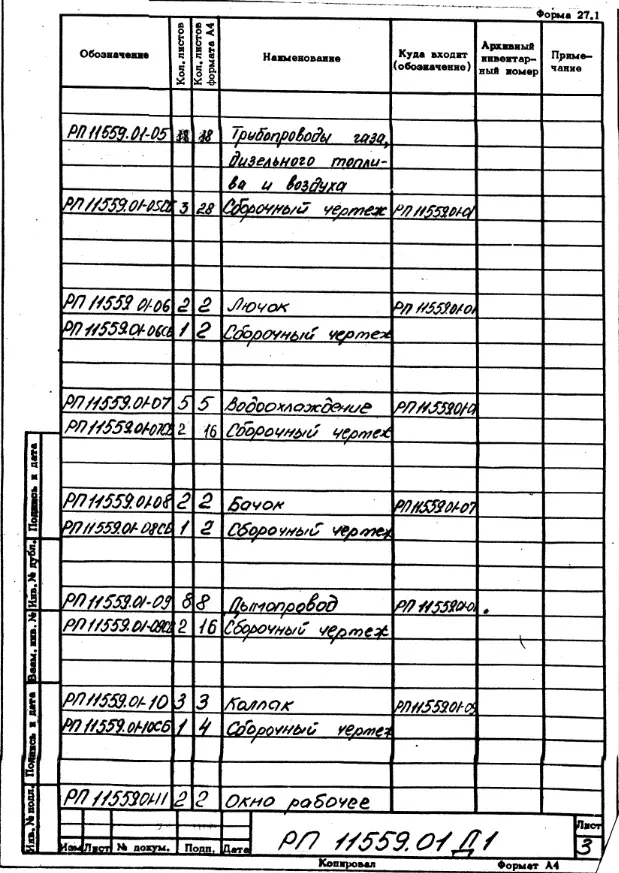 Форма 27.1
Обозначение Кол. листов Кол. листов формата А4 Наименование Куда входит (обозначение) Архивный инвентарный номер Примечание
РП 11559.01-05 18 18 Трубопроводы газа,
дизельного топли-
ва и воздуха
РП 11559.01-05СБ 3 28 Сборочный чертеж РП 11559.01-01
РП 11559 01-06 2 2 Лючок РП 11559.01-01
РП 11559.01-06СБ 1 2 Сборочный чертеж
РП 11559.01-07 5 5 Водоохлаждение РП 11559.01-01
РП 11559.01-07СБ 2 16 Сборочный чертеж
РП 11559.01-08 2 2 Бачок РП 11559.01-07
РП 11559.01-08СБ 1 2 Сборочный чертеж
РП 11559.01-09 8 8 Дымопровод РП 11559.01-01
РП 11559.01-09СБ 2 16 Сборочный чертеж
РП 11559.01-10 3 3 Колпак РП 11559.01-09
РП 11559.01-10СБ 1 4 Сборочный чертеж
РП 11559.01-11 2 2 Окно рабочее
Подпись и дата
Инв. № дубл.
Взам. инв. №
Подпись и дата
Инв. № подл.
Изм Лист № докум. Подп. Дата
РП 11559.01 Д1
Лист
3
Копировал Формат А4